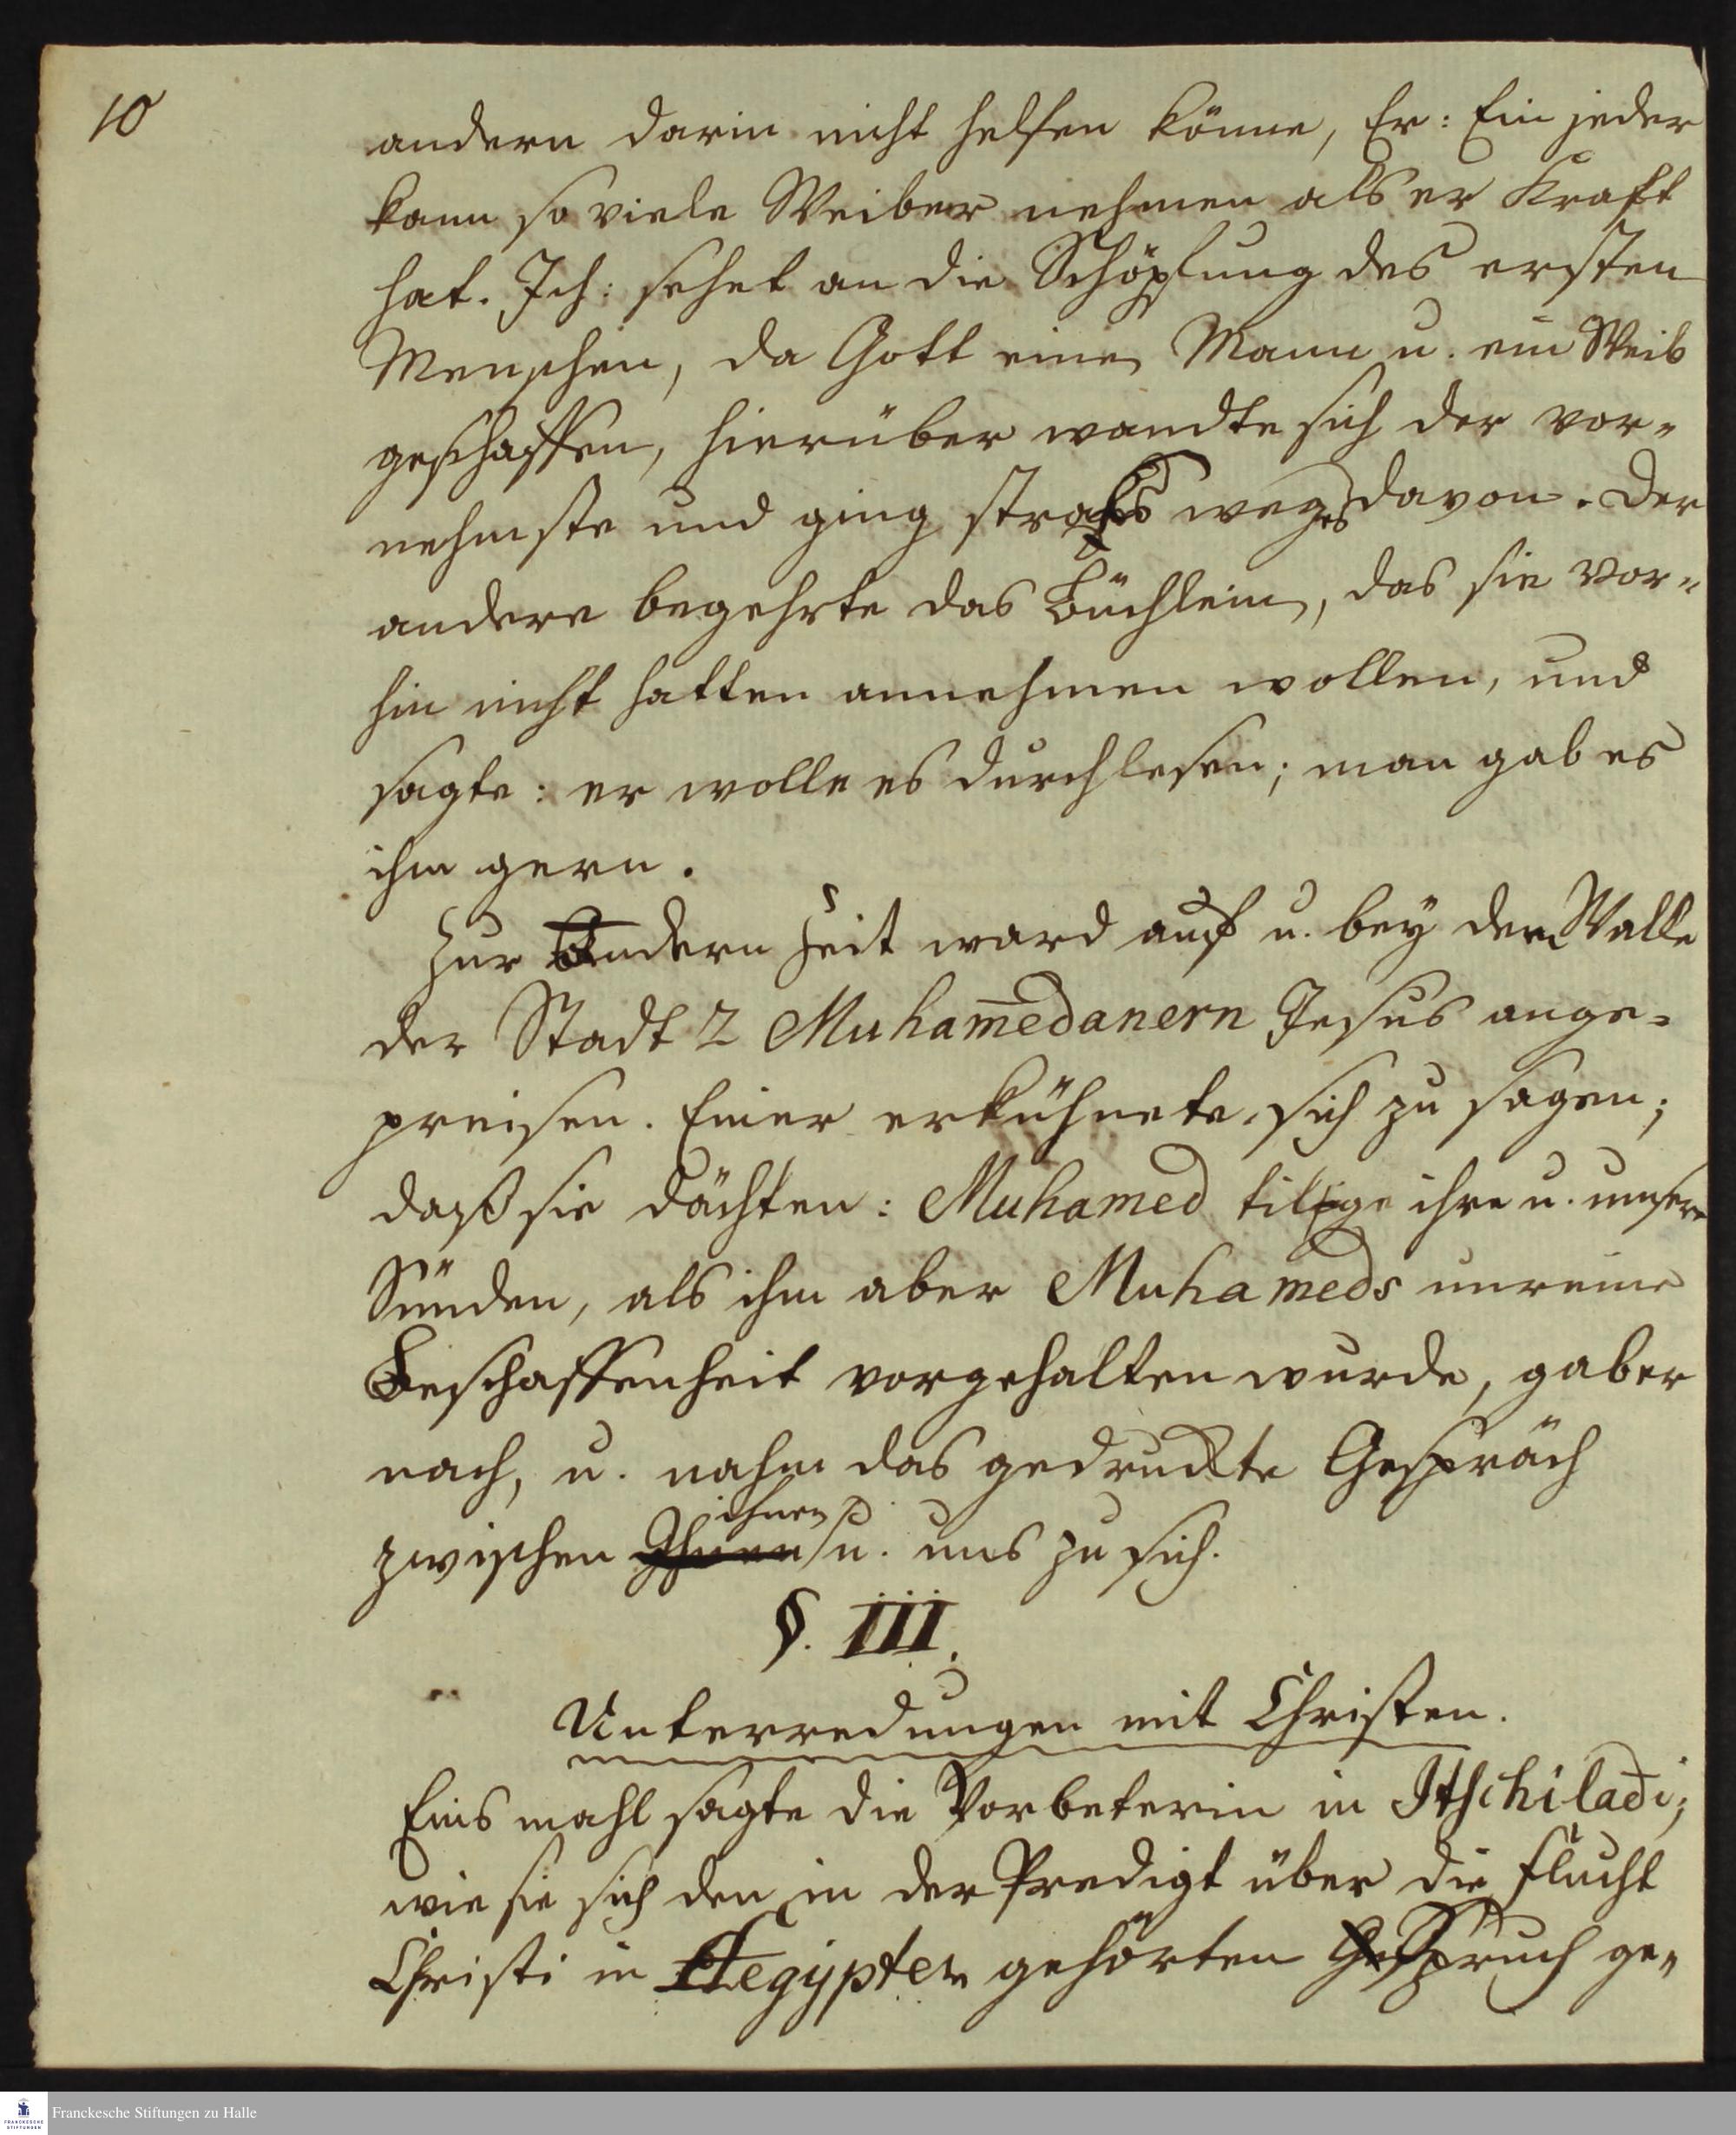 10
andern darin nicht helfen könne, Er: Ein jeder
kann so viele Weiber nehmen als er Kraft
hat. Ich: sehet an die Schöpfung des ersten
Menschen, da Gott einen Mann u. ein Weib
geschaffen, hierüber wandte sich der vor-
nehmste und ging straks weges davon. Der
andere begehrte das Büchlein, das sie vor-
hin nicht hatten annehmen wollen, und
sagte: er wolle es durchlesen; man gab es
ihm gern.
Zur andern Zeit ward auf u. bey dem Walle
der Stadt 2 Muham̄edanern Jesus ange-
preisen. Einer erkühnete sich zu sagen;
daß sie dächten: Muhamed tilge ihre u. unsere
Sünden, als ihm aber Muhameds unreine
Beschaffenheit vorgehalten wurde, gab er
nach, u. nahm das gedruckte Gespräch
zwischen ihnen u. uns zu sich.
§. III.
Unterredungen mit Christen.
Eins mahl sagte die Vorbeterin in Itschiladi;
wie sie sich den in der Predigt über die Flucht
Christi in Aegypten gehörten Spruch ge-
Franckesche Stiftungen zu Halle